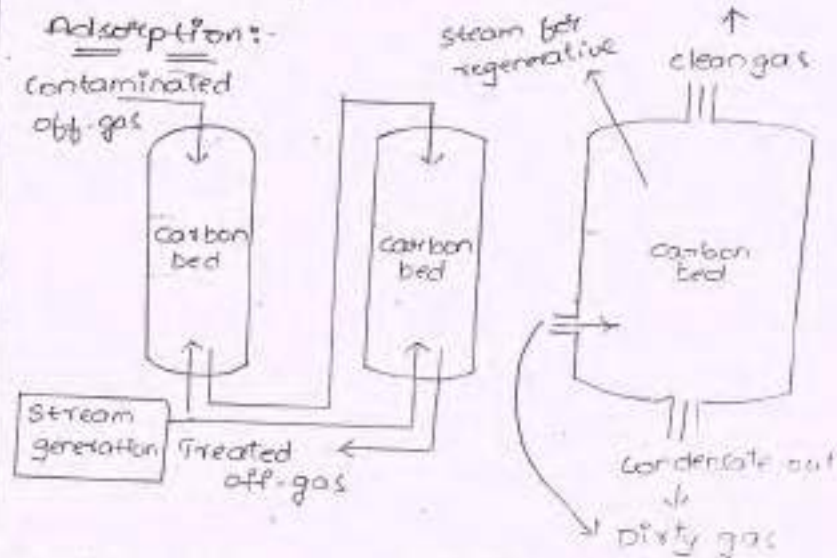 Adsorption:-
Contaminated
off-gas
carbon
bed
carbon
bed
Stream
generation
Treated
off-gas
Steam for
regenerative
clean gas
carbon
bed
Condensate out
Dirty gas